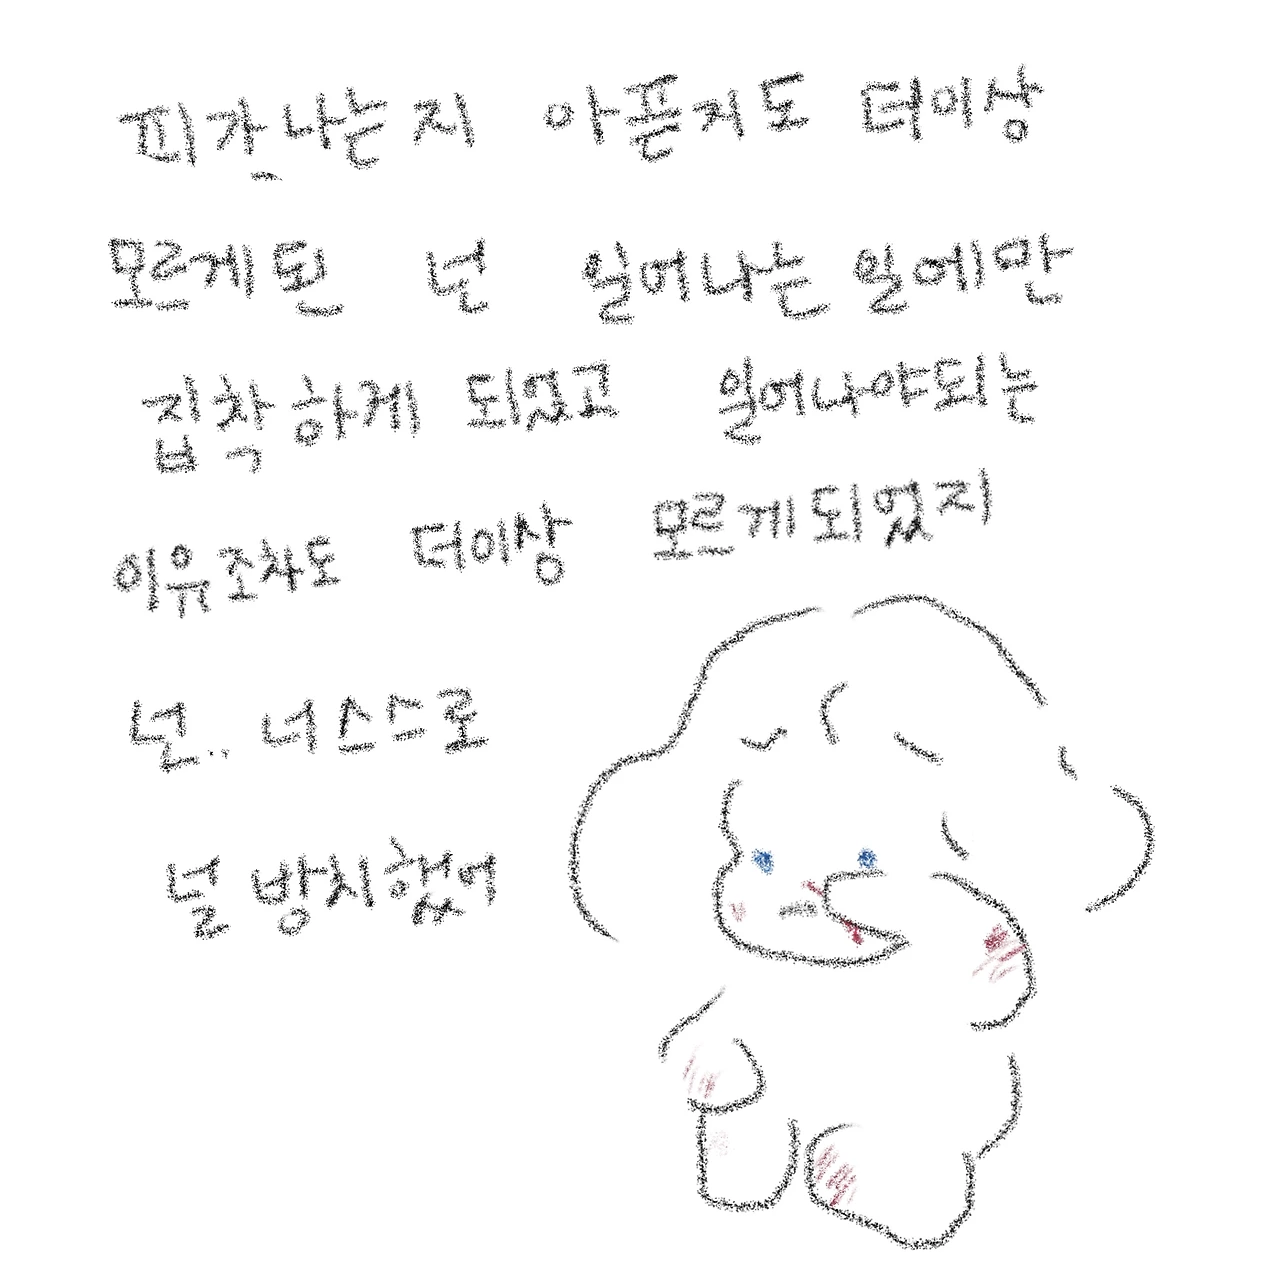 피가 나는지 아픈지도 더이상
모르게된 넌 일어나는 일에만
집착하게 되었고 일어나야되는
이유조차도 더이상 모르게되었지
넌.. 너스스로
널 방치했어